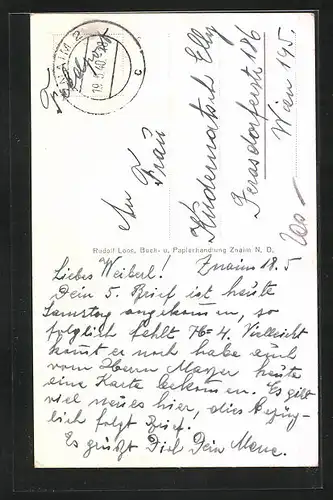 ZNAIM 2
19.5.40
c
Feldpost
An Frau
Kindermatsch Elly
Gerasdorferstr 186
Wien 195.
Rudolf Lose, Buch- u. Papierhandlung Znaim N. D.
Liebes Weiberl! Znaim 18.5
Dein 5. Brief ist heute
Samstag angekommen, so
folglich fehlt № 4. Vielleicht
kommt er noch habe auch
vom Mayer heute
eine Karte bekommen. Es gibt
viel neues hier, dies bezüg-
lich folgt Brief.
Es grüßt Dich Dein